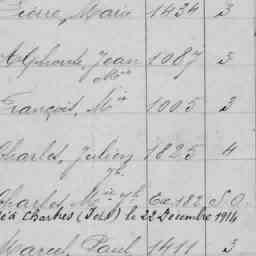 Pierre, Marie 1434 3
Alphonse, Jean 1087 3
Mie
François, Mie 1005 3
Charlet, Julien 1825 4
Je
Charlet, Mie Ex 182 S.O.
à Chartres le 22 Décembre 1914
Marcel, Paul 1411 3